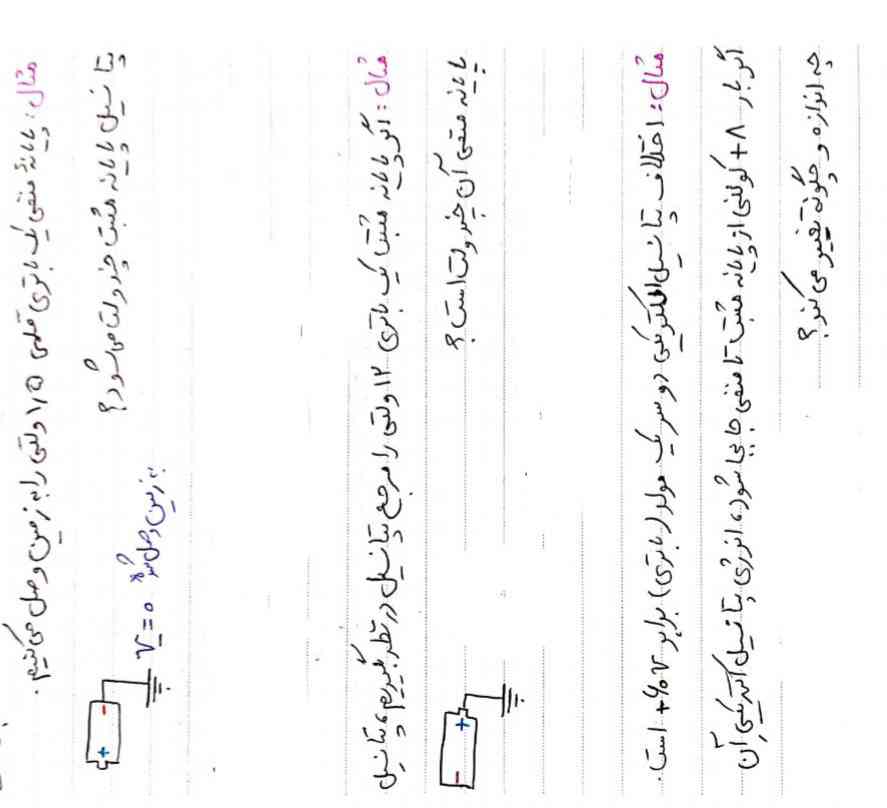 مثال: پایانهٔ منفی یک باتری قلمی ۱٫۵ ولتی را به زمین وصل می‌کنیم.
پتانسیل پایانه مثبت چند ولت می‌شود؟
- +
V=0 به زمین وصل شده
مثال: اگر پایانه مثبت یک باتری ۱۲ ولتی را مرجع پتانسیل در نظر بگیریم، پتانسیل
پایانه منفی آن چند ولت است؟
+ -
مثال: اختلاف پتانسیل الکتریکی دو سر یک مولد (باتری) برابر است.
اگر بار +۸ کولنی از پایانه مثبت تا منفی جابجا شود، انرژی پتانسیل الکتریکی آن
چه اندازه و چگونه تغییر می‌کند؟